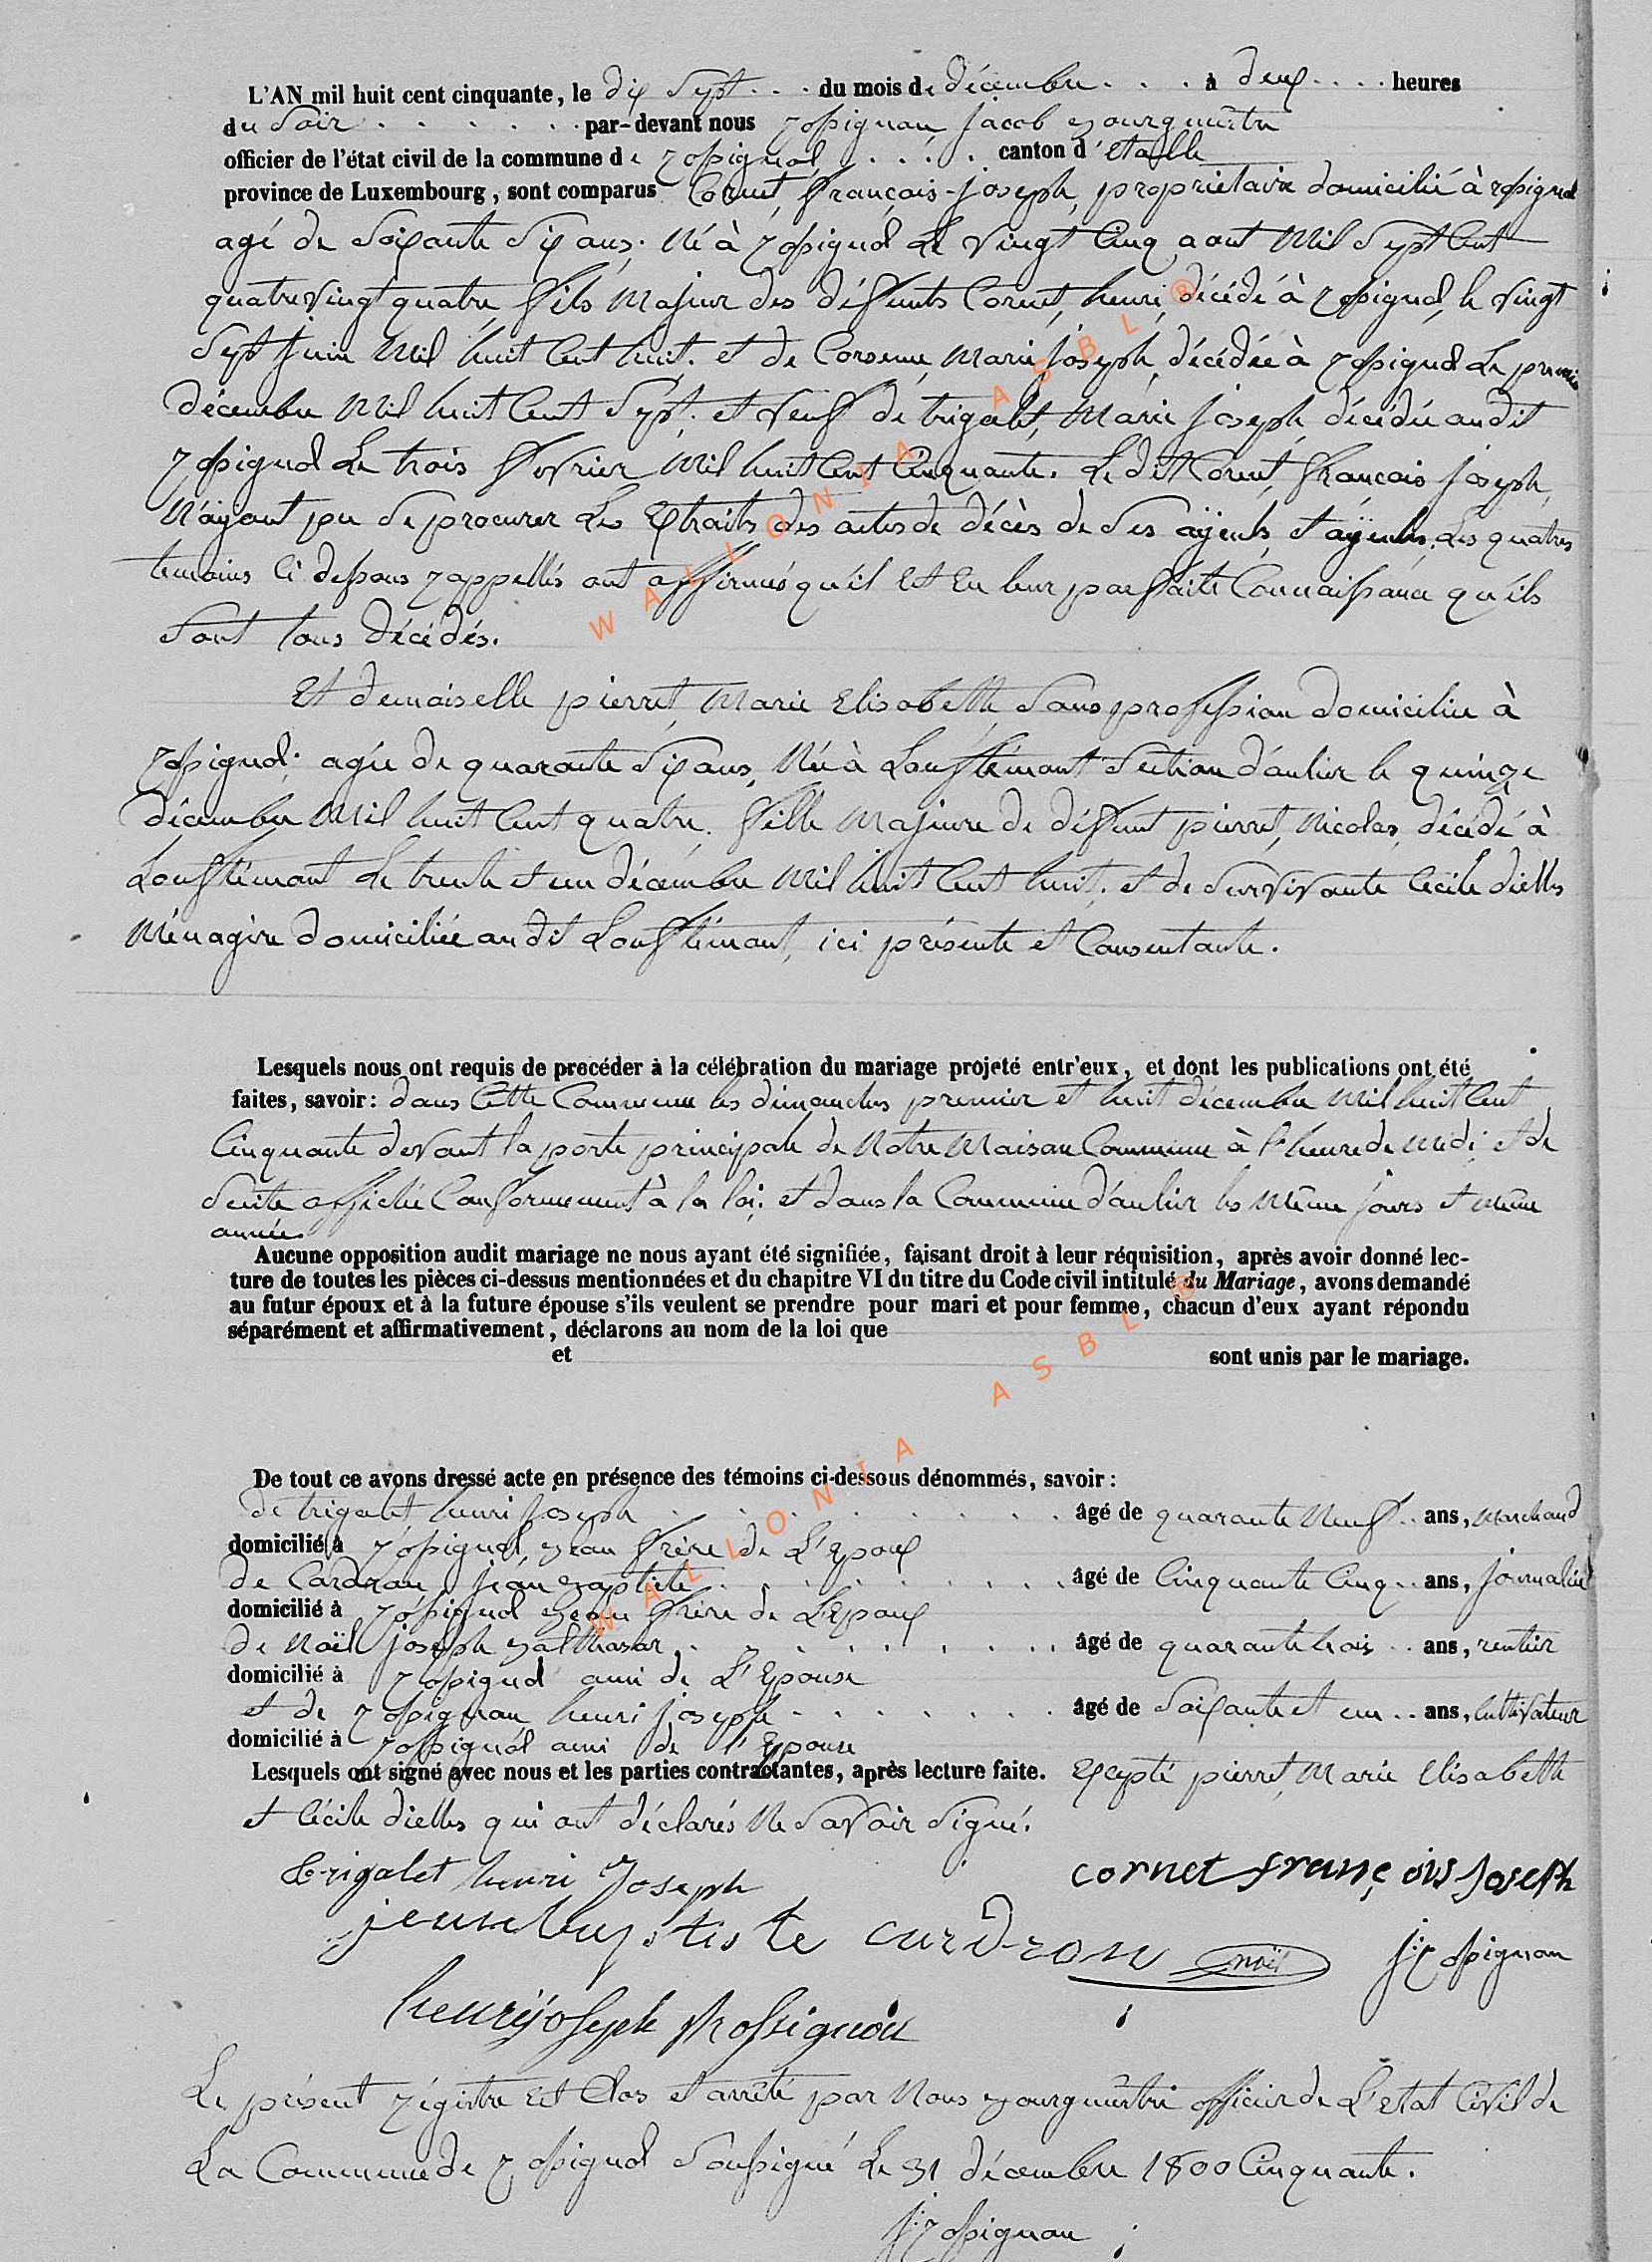 L'AN mil huit cent cinquante, le dix Sept . . . du mois de décembre . . . à deux . . . . heures
du Soir . . . . . . . par-devant nous rossignon, Jacob Bourgmestre
officier de l'état civil de la commune de rossignol, . . . . canton d'etalle
province de Luxembourg, sont comparus Cornet, François-Joseph, propriétaire domicilié à rossignol
agé de Soixante Six ans. Né à rossignol Le vingt Cinq aout Mil Sept Cent
quatre vingt quatre, fils Majeur des défunts Cornet, henri, décédé à rossignol, le vingt
Sept Juin Mil huit Cent huit. et de Corsenne, Marie Joseph, décédée à rossignol Le premier
décembre Mil huit Cent Sept. et veuf de trigalet, Marie Joseph, décédée audit
rossignol Le trois fevrier Mil huit Cent Cinquante. Le dit Cornet, François Joseph,
N'ayant pu Se procurer Les Extraits des actes de décès de Ses ayeuls, et ayeules. Les quatres
temoins Ci dessous rappellés ont affirmés qu'il est En leur parfaite Connaissance qu'ils
Sont tous décédés.
Et demoiselle pierret, Marie Elisabette, Sans profession domiciliée à
rossignol; agée de quarante Six ans, Née à Louftémont Section d'anlier le quinze
décembre Mil huit Cent quatre. fille Majeure de défunt pierret, Nicolas, décédé à
Louftémont Le trente et un décembre Mil huit Cent huit. et de Survivante Cécile dielles
Ménagère domiciliée audit Louftémont, ici présente et Consentante.
Lesquels nous ont requis de procéder à la célébration du mariage projeté entr'eux, et dont les publications ont été
faites, savoir: dans Cette Commune les dimanches premier et huit décembre Mil huit Cent
Cinquante devant la porte principale de Notre Maison Commune à l'heure de Midi et de
Suite affichée Conformement à la loi. et dans la Commune d'anlier les Même jours et Même
année.
Aucune opposition audit mariage ne nous ayant été signifiée, faisant droit à leur réquisition, après avoir donné lec-
ture de toutes les pièces ci-dessus mentionnées et du chapitre VI du titre du Code civil intitulé du Mariage, avons demandé
au futur époux et à la future épouse s'ils veulent se prendre pour mari et pour femme, chacun d'eux ayant répondu
séparément et affirmativement, déclarons au nom de la loi que
et sont unis par le mariage.
De tout ce avons dressé acte en présence des témoins ci-dessous dénommés, savoir:
de trigalet, henri Joseph . . . . . . . . . âgé de quarante Neuf . . ans, Marchand
domicilié à rossignol, Beau frère de L'Epoux
de Cardron, Jean Baptiste . . . . . . . . . âgé de Cinquante Cinq . . ans, Journalier
domicilié à rossignol Beau frère de L'Epoux
de Noël Joseph Balthasar . . . . . . . . . âgé de quarante trois . . ans, rentier
domicilié à rossignol ami de L'Epouse
et de rossignon henri Joseph . . . . . . . âgé de Soixante et un . . ans, Cultivateur
domicilié à rossignol ami de l'Epouse
Lesquels ont signé avec nous et les parties contractantes, après lecture faite. Excepté pierret, Marie Elisabette
et Cécile dielles qui ont déclarés Ne Savoir Signé.
trigalet henri Joseph
cornet françois Joseph
jean baptiste cardron
noël
J. rossignon
henri joseph Rossignon
Le présent régistre est Clos et arrêté par Nous Bourgmestre officier de L'etat Civil de
La Commune de rossignol Soussigné Le 31 décembre 1800 Cinquante.
J. rossignon
WALLONIA ASBL ®
WALLONIA ASBL ®